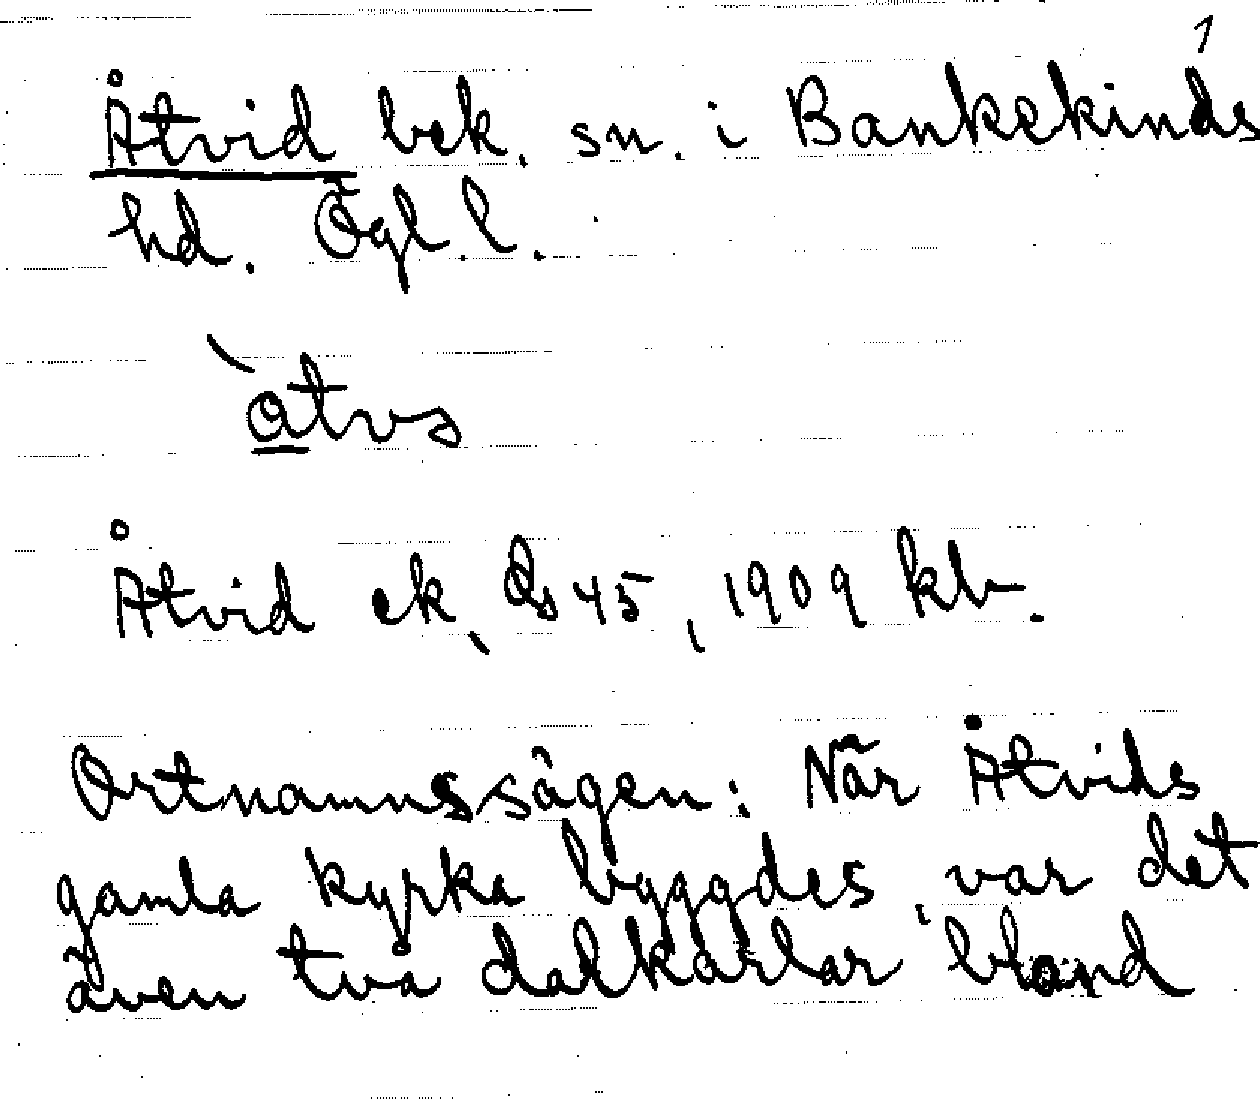 1
Åtvid bek. sn. i Bankekinds
hd. Ögl. l.
Åtvid ek. 45, 1909 kb.
Ortnamnssägen: När Åtvids
gamla kyrka byggdes var det
även två dalkarlar i bland